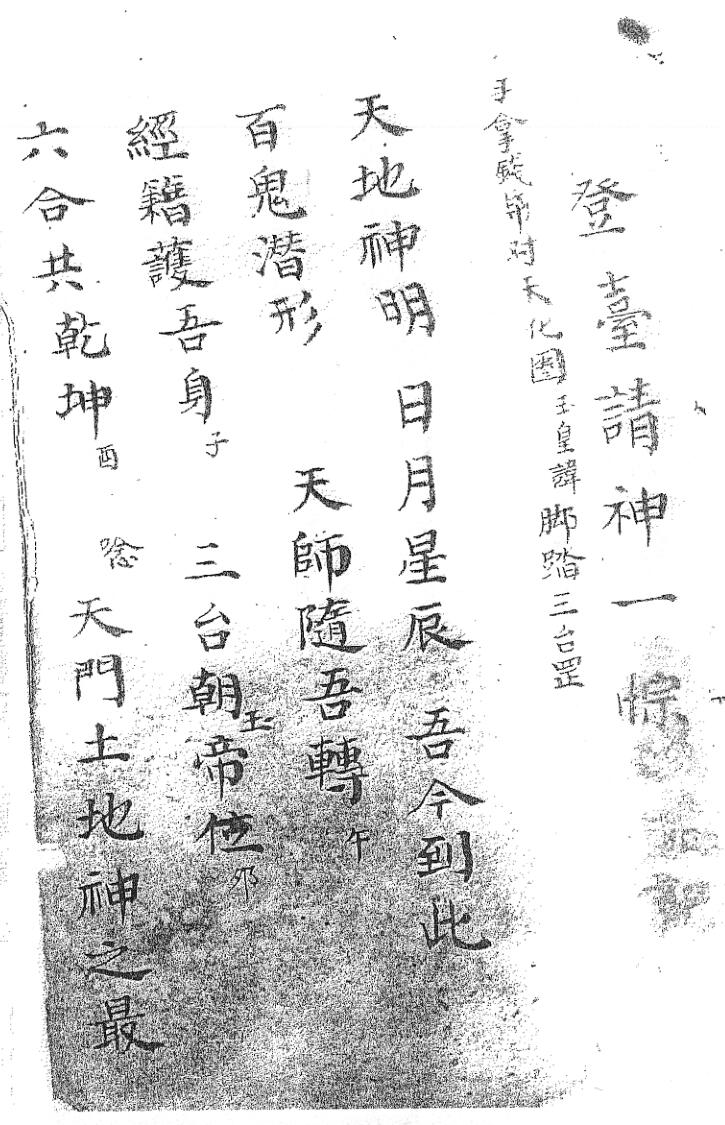 登臺請神一悰
手拿錢帛对天化圈玉皇諱脚踏三台罡
天地神明 日月星辰 吾今到此
百鬼潜形 天師隨吾轉午
經籍護吾身子 三台朝玉帝位卯
六合共乾坤酉 唸 天門土地神之最